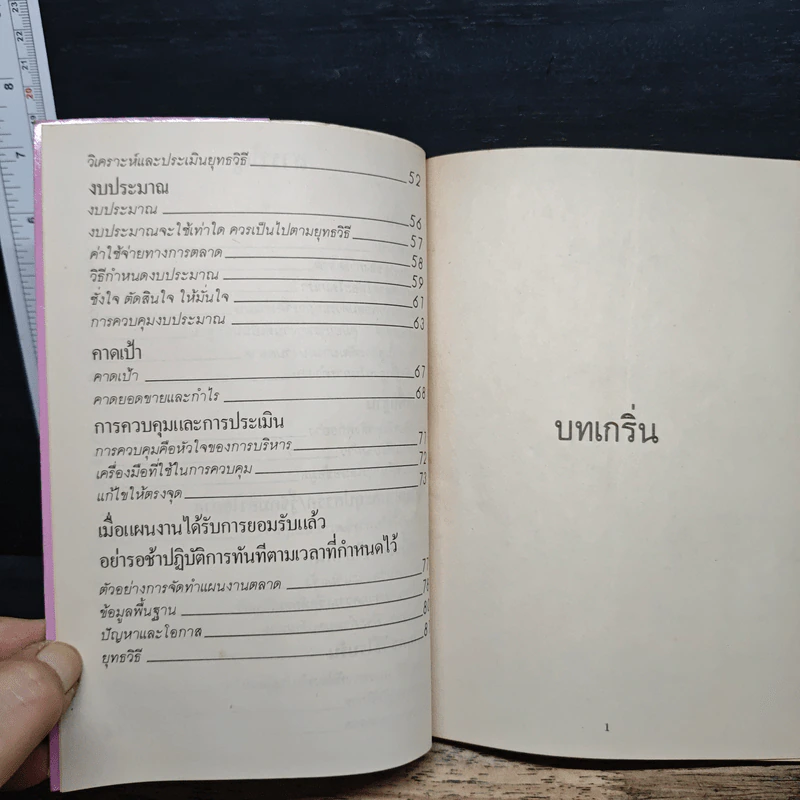 วิเคราะห์และประเมินยุทธวิธี 52
งบประมาณ
งบประมาณ 56
งบประมาณจะใช้เท่าใด ควรเป็นไปตามยุทธวิธี 57
ค่าใช้จ่ายทางการตลาด 58
วิธีกำหนดงบประมาณ 59
ชั่งใจ ตัดสินใจ ให้มั่นใจ 61
การควบคุมงบประมาณ 63
คาดเป้า
คาดเป้า 67
คาดยอดขายและกำไร 68
การควบคุมและการประเมิน
การควบคุมคือหัวใจของการบริหาร 71
เครื่องมือที่ใช้ในการควบคุม 72
แก้ไขให้ตรงจุด 73
เมื่อแผนงานได้รับการยอมรับแล้ว
อย่ารอช้าปฏิบัติการทันทีตามเวลาที่กำหนดไว้
ตัวอย่างการจัดทำแผนงานตลาด 77
ข้อมูลพื้นฐาน 78
ปัญหาและโอกาส
ยุทธวิธี
บทเกริ่น
1
8
7
23
22
21
20
19